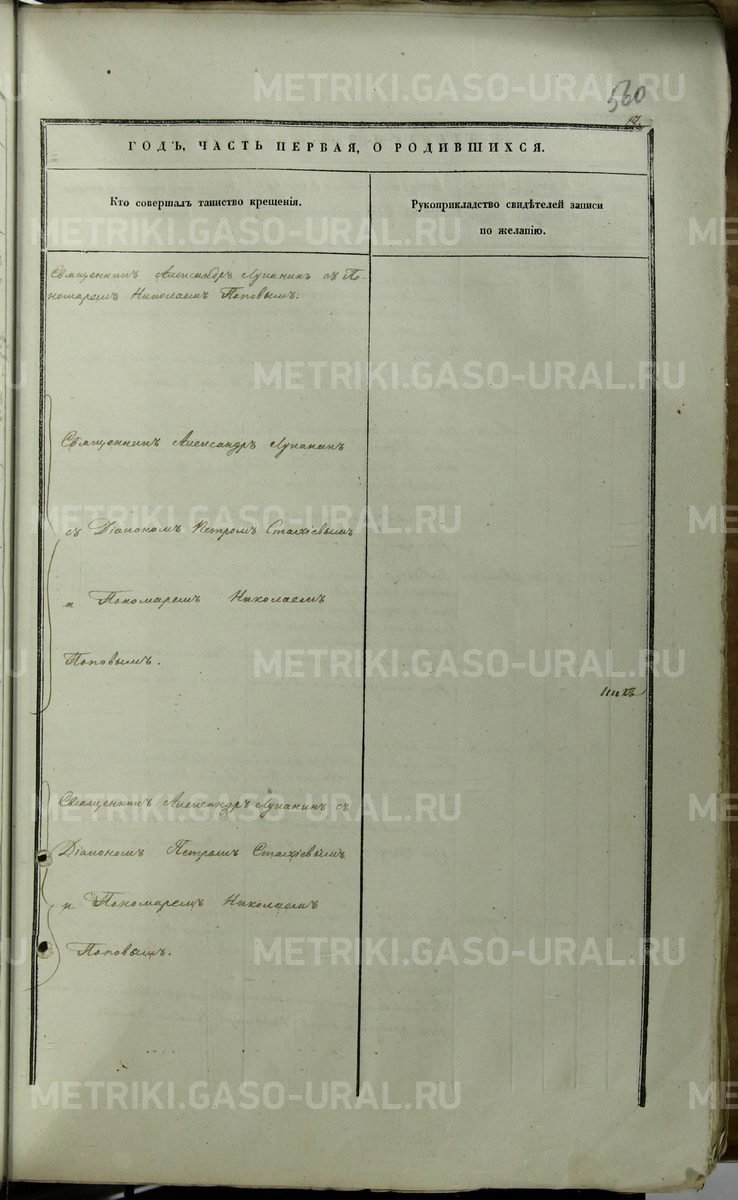 560
ГОДЪ, ЧАСТЬ ПЕРВАЯ, О РОДИВШИХСЯ.
Кто совершалъ таинство крещенія.
Рукоприкладство свидѣтелей записи
по желанію.
Священникъ Александръ Лупанинъ съ По-
номаремъ Николаемъ Поповымъ.
Священникъ Александръ Лупанинъ
съ Діакономъ Петромъ Стахіевымъ
и Пономаремъ Николаемъ
Поповымъ.
Священникъ Александръ Лупанинъ съ
Діакономъ Петромъ Стахіевымъ
и Пономаремъ Николаемъ
Поповымъ.
METRIKI.GASO-URAL.RU